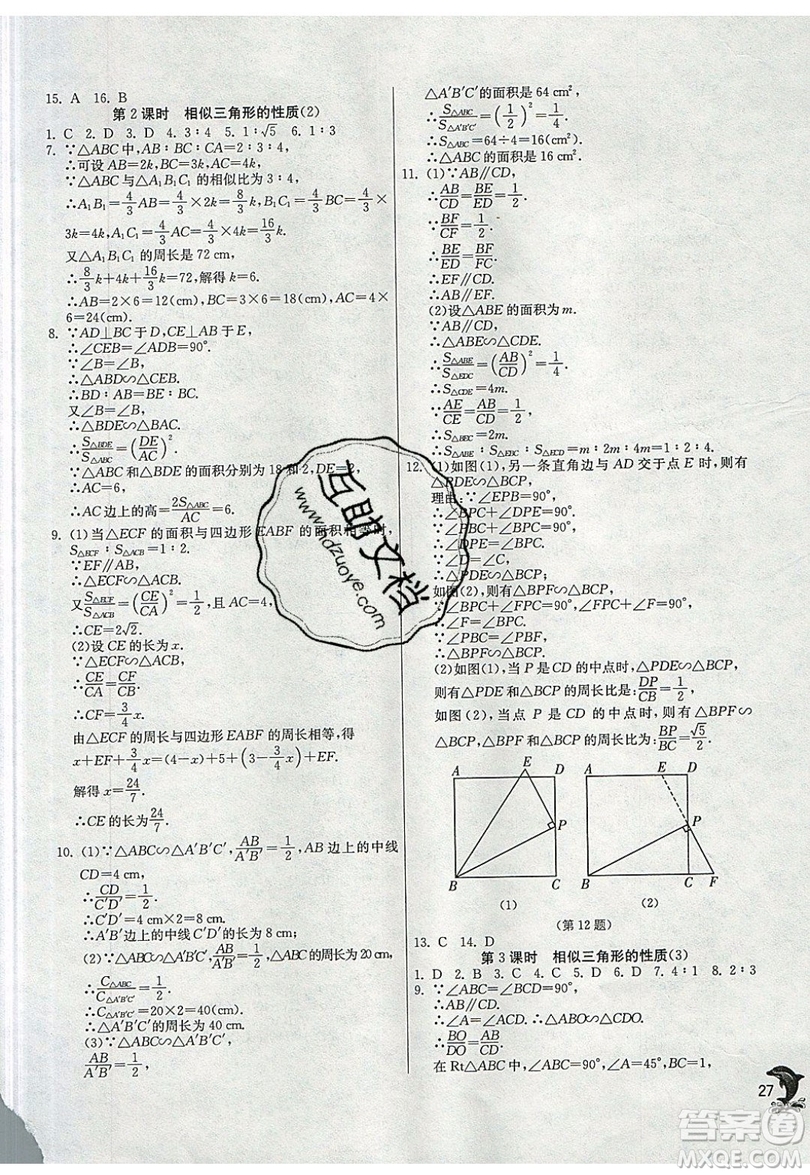 15. A 16. B
第2课时 相似三角形的性质(2)
1. C 2. D 3. D 4. 3∶4 5. 1∶√5 6. 1∶3
7. ∵△ABC中,AB∶BC∶CA=2∶3∶4,
∴可设AB=2k,BC=3k,AC=4k,
∵△ABC与△A₁B₁C₁的相似比为3∶4,
∴A₁B₁=4/3AB=4/3×2k=8/3k,B₁C₁=4/3BC=4/3×
3k=4k,A₁C₁=4/3AC=4/3×4k=16/3k.
又△A₁B₁C₁的周长是72 cm,
∴8/3k+4k+16/3k=72,解得k=6.
∴AB=2×6=12(cm),BC=3×6=18(cm),AC=4×
6=24(cm).
8. ∵AD⊥BC于D,CE⊥AB于E,
∴∠CEB=∠ADB=90°.
∵∠B=∠B,
∴△ABD∽△CBE.
∴BD∶AB=BE∶BC.
又∠B=∠B,
∴△BDE∽△BAC.
∴S△BDE/S△BAC=(DE/AC)².
∵△ABC和△BDE的面积分别为18和2,DE=2,
∴AC=6.
∴AC边上的高=2S△ABC/AC=6.
9. (1)当△ECF的面积与四边形EABF的面积相等时,
S△ECF∶S△ACB=1∶2.
∵EF∥AB,
∴△ECF∽△ACB.
又S△ECF/S△ACB=(CE/CA)²=1/2,且AC=4,
∴CE=2√2.
(2)设CE的长为x.
∵△ECF∽△ACB,
∴CE/CA=CF/CB.
∴CF=3/4x.
由△ECF的周长与四边形EABF的周长相等,得
x+EF+3/4x=(4-x)+5+(3-3/4x)+EF.
解得x=24/7.
∴CE的长为24/7.
10. (1)∵△ABC∽△A′B′C′,AB/A′B′=1/2,AB边上的中线
CD=4 cm,
∴CD/C′D′=1/2.
∴C′D′=4 cm×2=8 cm.
∴A′B′上的中线C′D′的长为8 cm.
(2)∵△ABC∽△A′B′C′,AB/A′B′=1/2,△ABC的周长为20 cm,
∴C△ABC/C△A′B′C′=1/2.
∴C△A′B′C′=20×2=40(cm).
∴△A′B′C′的周长为40 cm.
(3)∵△ABC∽△A′B′C′,
AB/A′B′=1/2,
△A′B′C′的面积是64 cm²,
∴S△ABC/S△A′B′C′=(1/2)²=1/4.
∴S△ABC=64÷4=16(cm²).
∴△ABC的面积是16 cm².
11. (1)∵AB∥CD,
∴AB/CD=BE/ED=1/2.
∵BF/CF=1/2,
∴BE/ED=BF/FC.
∴EF∥CD.
∴AB∥EF.
(2)设△ABE的面积为m.
∵AB∥CD,
∴△ABE∽△CDE.
∴S△ABE/S△EDC=(AB/CD)²=1/4.
∴S△CDE=4m.
∵AE/CE=AB/CD=1/2,
∴S△BEC=2m.
∴S△ABE∶S△BEC∶S△ECD=1∶2∶4.
12. (1)如图(1),另一条直角边与AD交于点E时,则有
理由:∵∠EPB=90°,
∴∠BPC+∠DPE=90°.
∴∠DPE=∠PBC.
∵∠D=∠C,
∴△PDE∽△BCP.
如图(2),则有△BPF∽△BCP,
∵∠BPC+∠FPC=90°,∠FPC+∠F=90°,
∴∠F=∠BPC.
∵∠PBC=∠PBF,
∴△BPF∽△BCP.
(2)如图(1),当P是CD的中点时,
则有△PDE和△BCP的周长比是:DP/CB=1/2,
如图(2),当点P是CD的中点时,则有△BPF∽
△BCP,△BPF和△BCP的周长比为:BP/BC=√5/2.
A E D P B C
(1)
A E D P B C F
(2)
(第12题)
13. C 14. D
第3课时 相似三角形的性质(3)
1. D 2. B 3. C 4. C 5. D 6. D 7. 4∶1 8. 2∶3
9. ∵∠ABC=∠BCD=90°,
∴AB∥CD.
∴∠A=∠ACD. ∴△ABO∽△CDO.
∴BO/DO=AB/CD.
在Rt△ABC中,∠ABC=90°,∠A=45°,BC=1,
27
互助文档
www.hdzuoye.com
答案圈
MXQE.COM